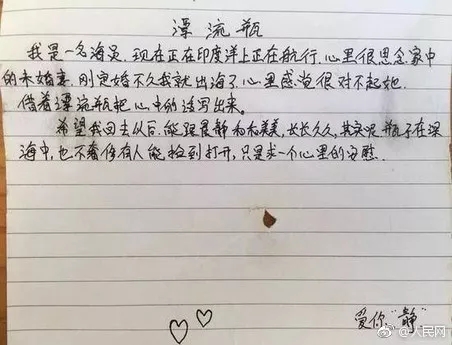 漂流瓶
我是一名海员,现在正在印度洋上正在航行,心里很思念家中
的未婚妻,刚定婚不久我就出海了,心里感觉很对不起她.
借着漂流瓶把心中的话写出来.
希望我回去以后,能跟静和和美美,长长久久,其实呢瓶子在深
海中,也不奢侈有人能捡到打开,只是求一个心里的安慰.
爱你"静"
@人民网